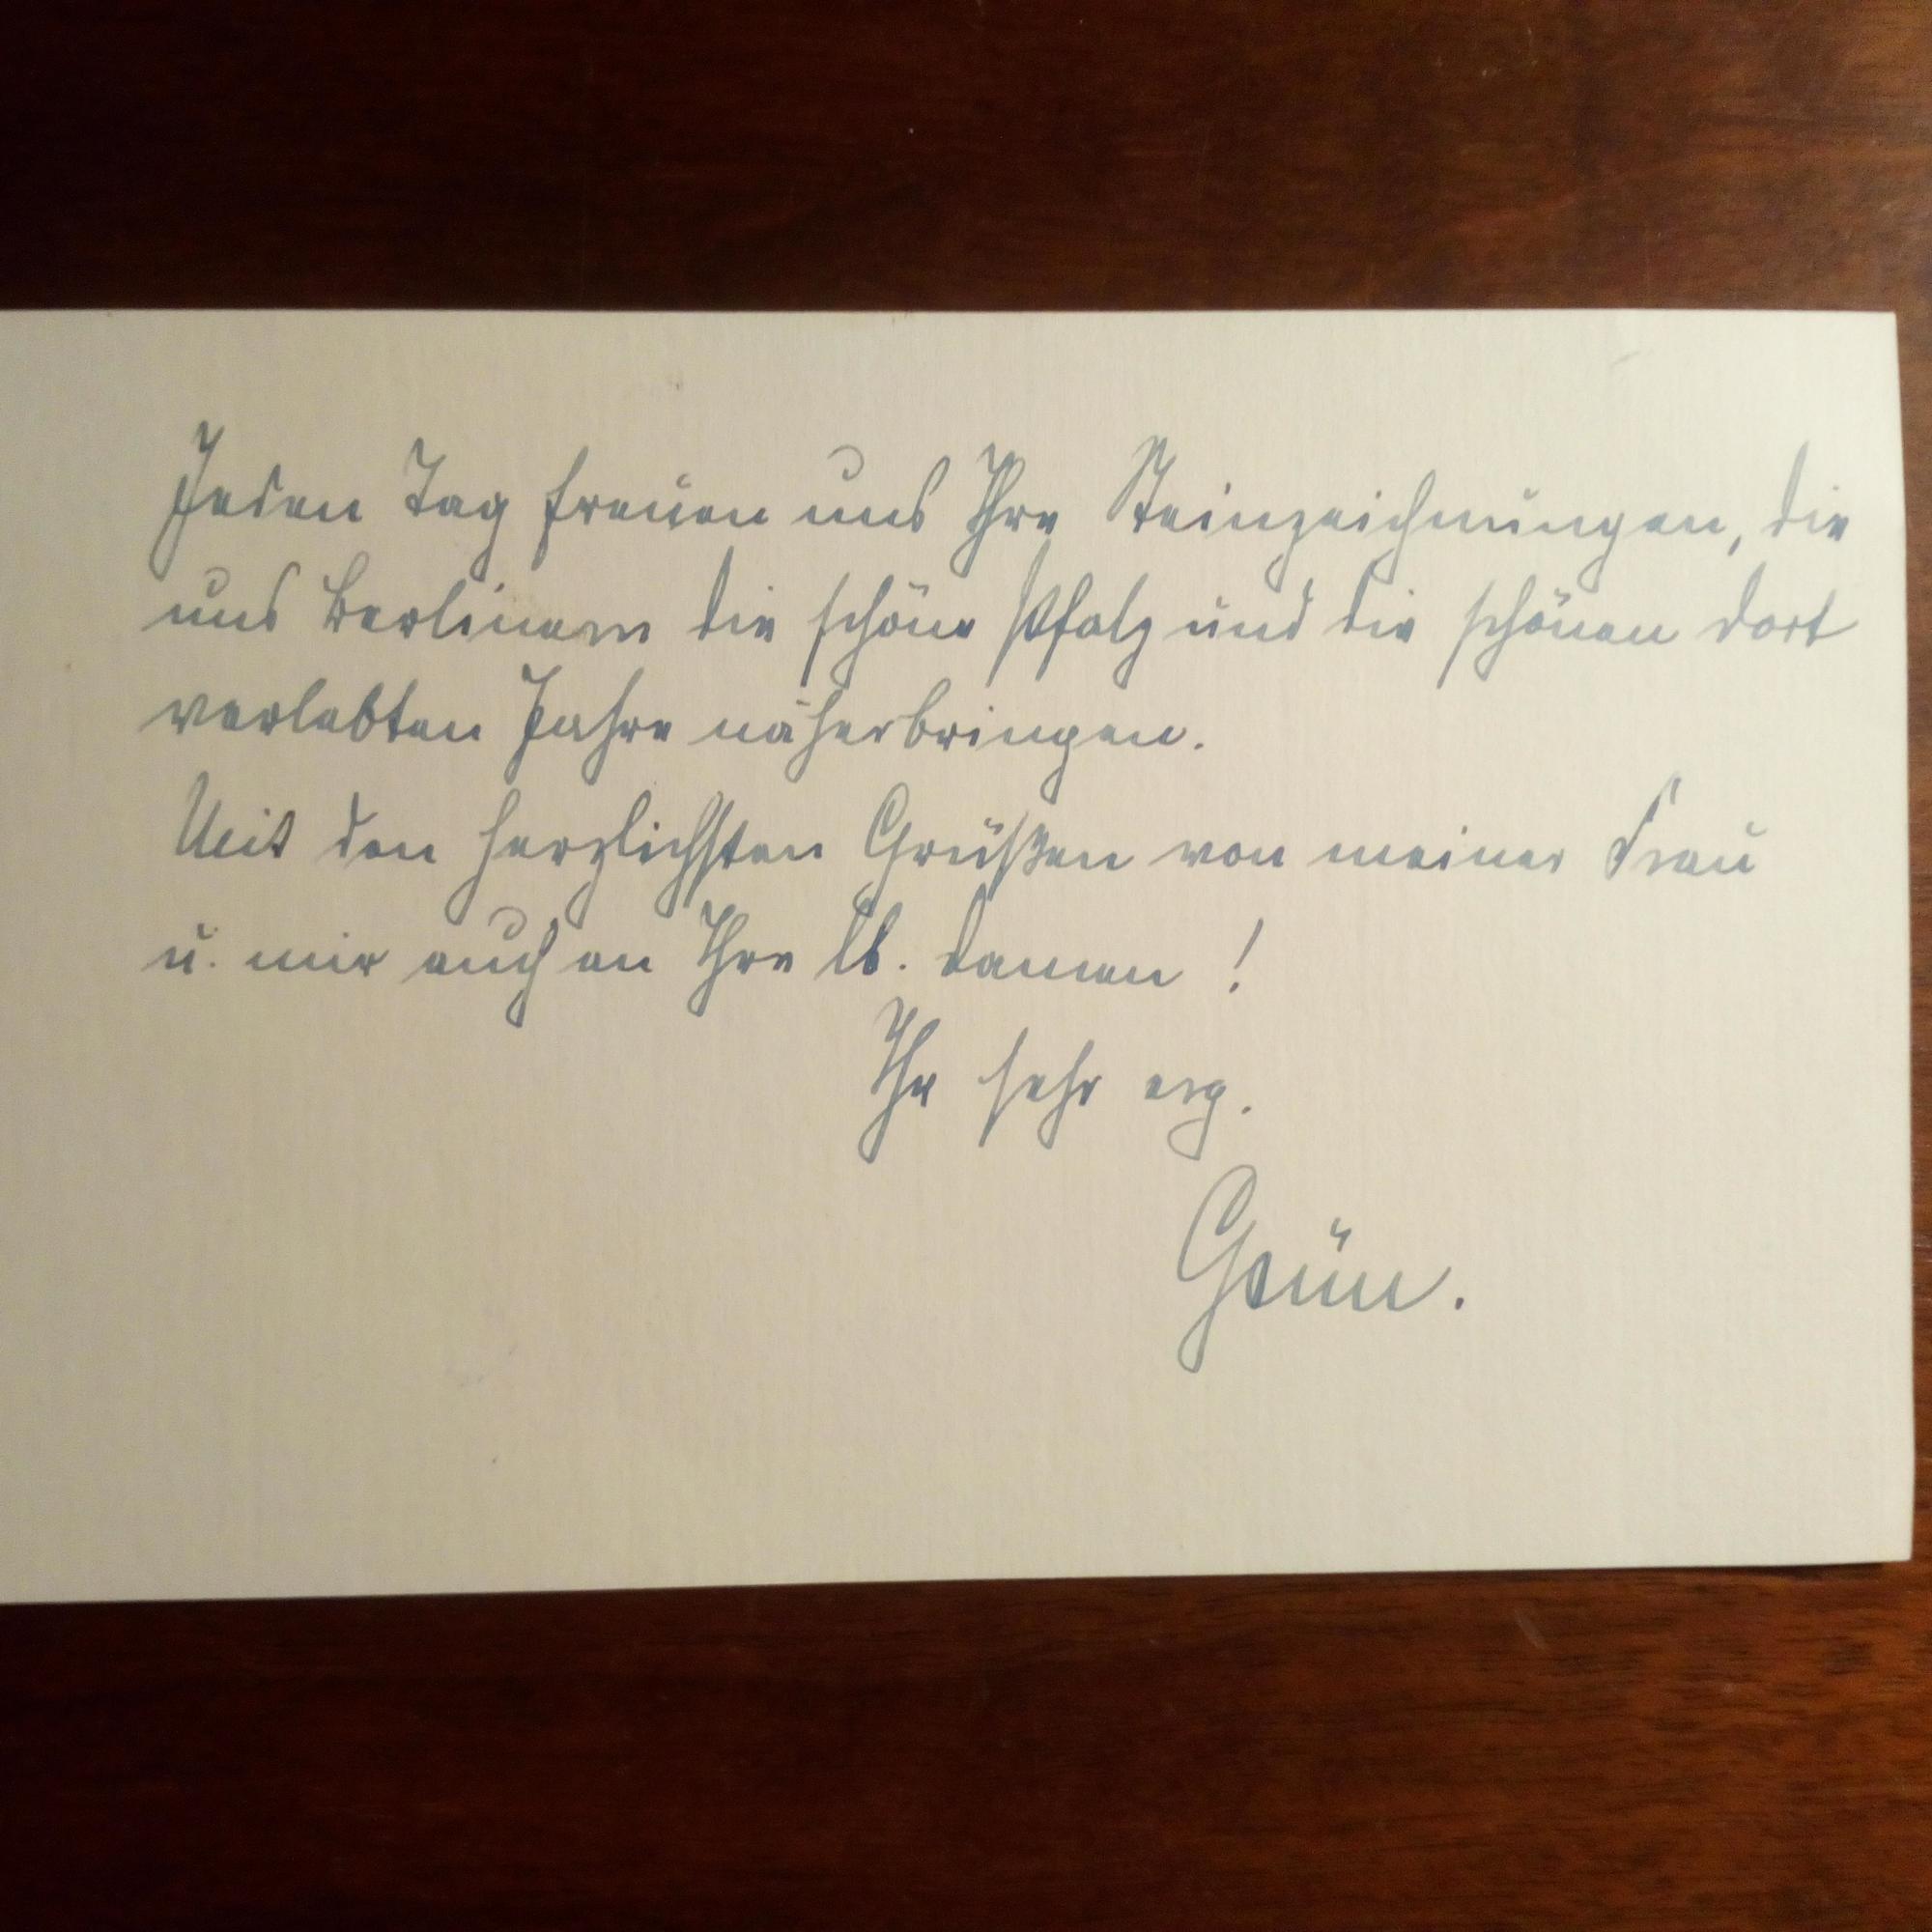 Jeden Tag freuen uns Ihre Steinzeichnungen, die
uns Berlinern die schöne Pfalz und die schönen dort
verlebten Jahre näherbringen.
Mit den herzlichsten Grüßen von meiner Frau
u. mir auch an Ihre lb. Damen !
Ihr sehr erg.
Grün.